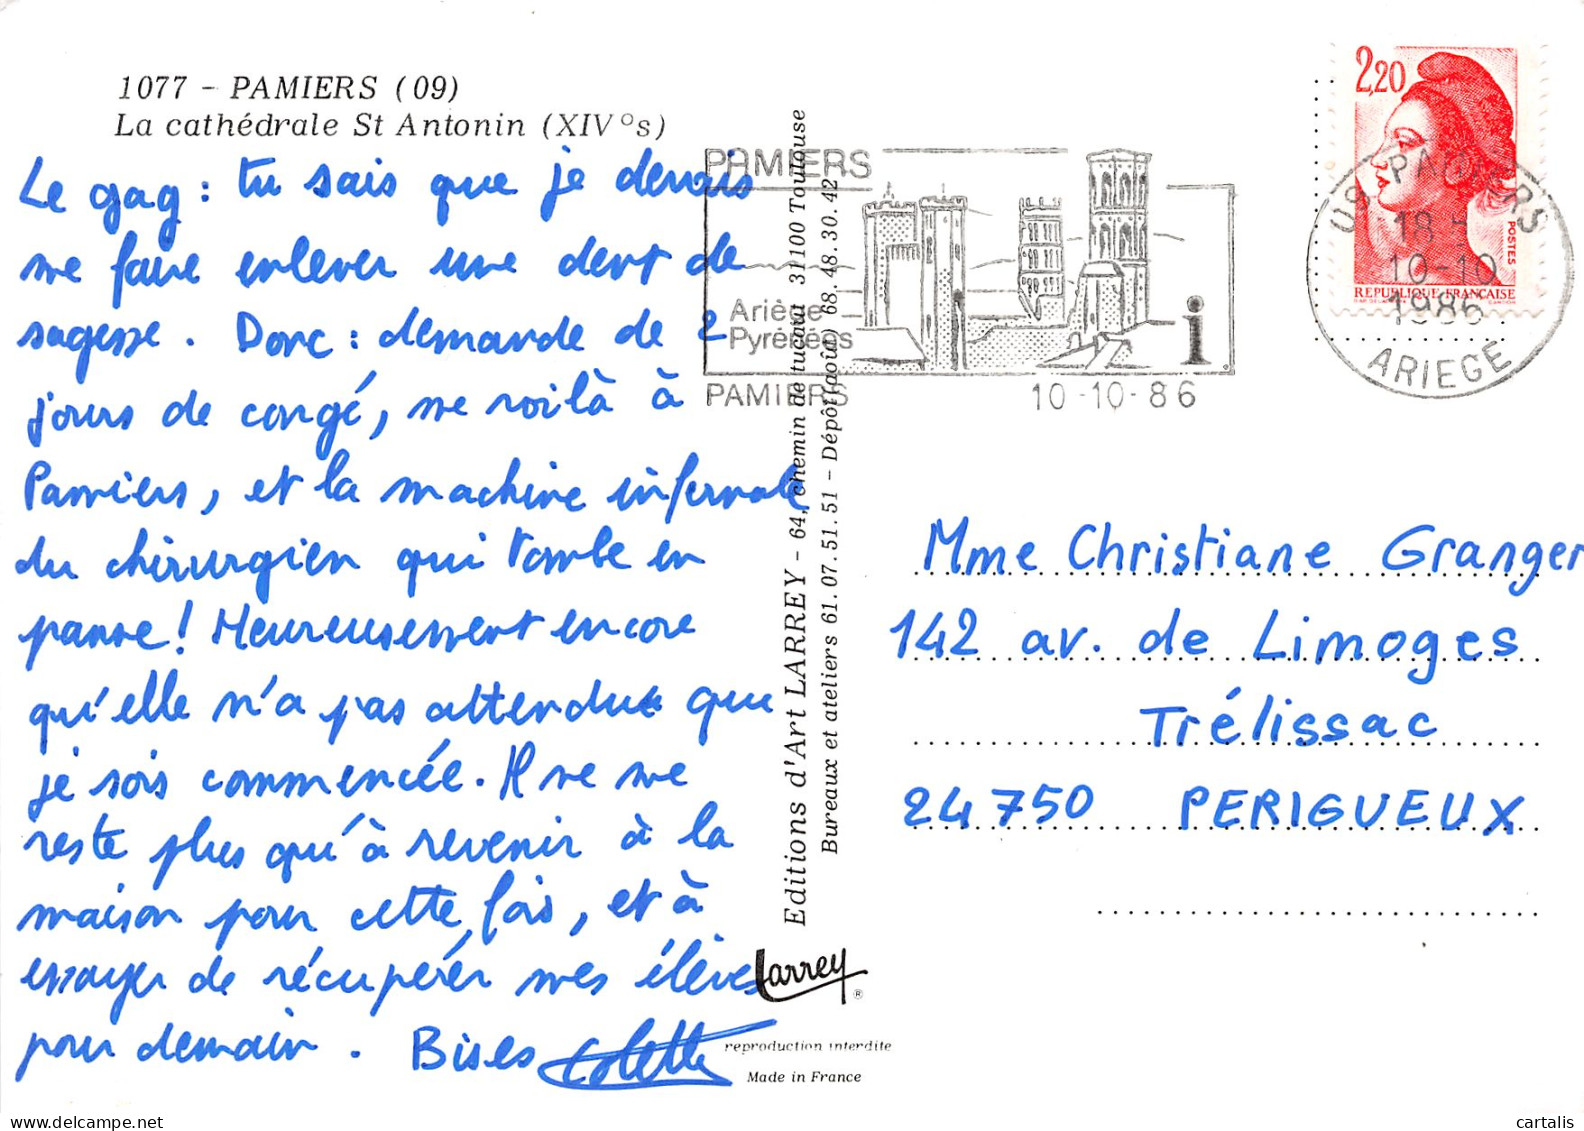 1077 - PAMIERS (09)
La cathédrale St Antonin (XIV°s)
Le gag : tu sais que je devais
me faire enlever une dent de
sagesse. Donc : demande de 2
jours de congé, me voilà à
Pamiers, et la machine infernale
du chirurgien qui tombe en
panne ! Heureusement encore
qu'elle n'a pas attendue que
je sois commencée. Il ne me
reste plus qu'à revenir à la
maison pour cette fois, et à
essayer de récupérer mes élèves
pour demain. Bises Colette
Editions d'Art LARREY - 64, chemin de tucaut 31100 Toulouse
Bureaux et ateliers 61.07.51.51 - Dépôt (août) 68.48.30.42
Larrey
®
reproduction interdite
Made in France
PAMIERS
Ariège
Pyrénées
i
PAMIERS
10-10-86
2,20
POSTES
REPUBLIQUE FRANÇAISE
09 PAMIERS
18 h
10-10
1986
ARIEGE
Mme Christiane Granger
142 av. de Limoges
Trélissac
24750 PERIGUEUX
cartalis